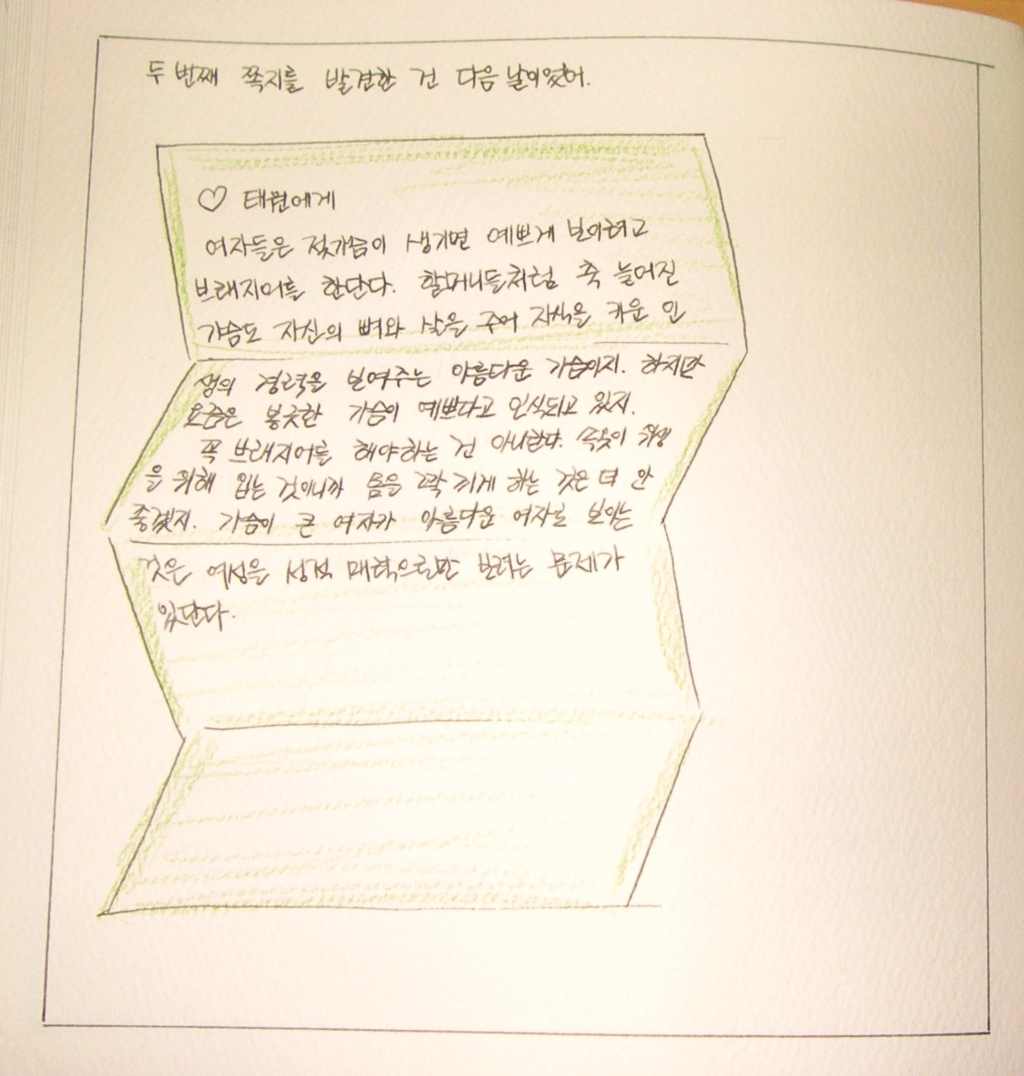 두번째 쪽지를 발견한 건 다음날이었어.
♡ 태원에게
여자들은 젖가슴이 생기면 예쁘게 보이려고
브래지어를 한단다. 할머니들처럼 축 늘어진
가슴도 자신의 뼈와 살을 주어 자식을 키운 인
생의 경력을 보여주는 아름다운 가슴이지. 하지만
요즘은 봉긋한 가슴이 예쁘다고 인식되고 있지.
꼭 브래지어를 해야하는 건 아니란다. 속옷이 위생
을 위해 입는 것이니까 몸을 꽉 끼게 하는 것은 더 안
좋겠지. 가슴이 큰 여자가 아름다운 여자로 보이는
것은 여성을 성적 매력으로만 보려는 문제가
있단다.